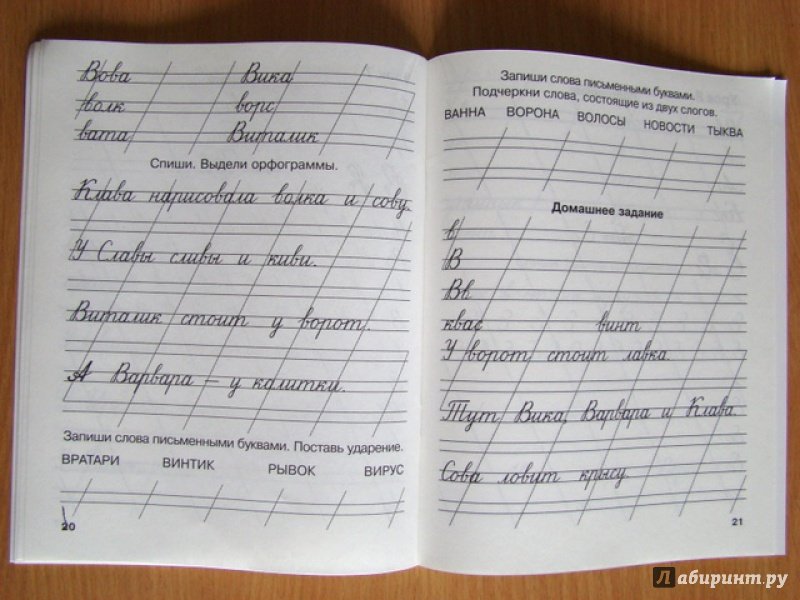 Вова Вика
волк ворс
вата Виталик
Спиши. Выдели орфограммы.
Клава нарисовала волка и сову.
У Славы сливы и киви.
Виталик стоит у ворот.
А Варвара – у калитки.
Запиши слова письменными буквами. Поставь ударение.
ВРАТАРИ ВИНТИК РЫВОК ВИРУС
20
Запиши слова письменными буквами.
Подчеркни слова, состоящие из двух слогов.
ВАННА ВОРОНА ВОЛОСЫ НОВОСТИ ТЫКВА
Домашнее задание
в
В
Вв
квас винт
У ворот стоит лавка.
Тут Вика, Варвара и Клава.
Сова ловит крысу.
21
Лабиринт.ру